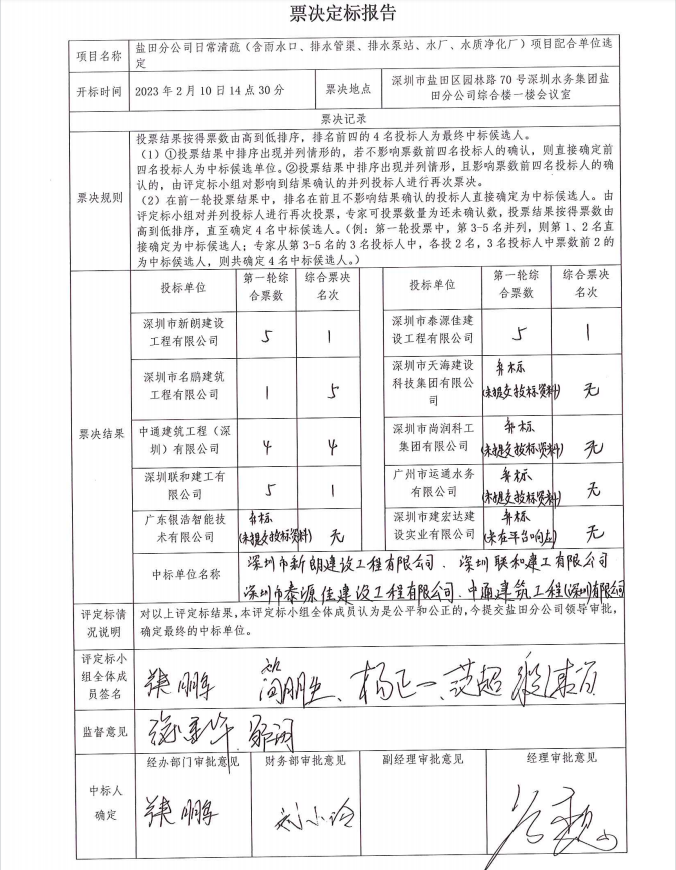 票决定标报告
项目名称
盐田分公司日常清疏（含雨水口、排水管渠、排水泵站、水厂、水质净化厂）项目配合单位选
定
开标时间
2023 年 2 月 10 日 14 点 30 分
票决地点
深圳市盐田区园林路 70 号深圳水务集团盐
田分公司综合楼一楼会议室
票决记录
票决规则
投票结果按得票数由高到低排序，排名前四的 4 名投标人为最终中标候选人。
（1）①投票结果中排序出现并列情形的，若不影响票数前四名投标人的确认，则直接确定前
四名投标人为中标候选单位。②投票结果中排序出现并列情形，且影响票数前四名投标人的确
认的，由评定标小组对影响到结果确认的并列投标人进行再次票决。
（2）在前一轮投票结果中，排名在前且不影响结果确认的投标人直接确定为中标候选人。由
评定标小组对并列投标人进行再次投票，专家可投票数量为还未确认数，投票结果按得票数由
高到低排序，直至确定 4 名中标候选人。（例：第一轮投票中，第 3-5 名并列，则第 1、2 名直
接确定为中标候选人；专家从第 3-5 名的 3 名投标人中，各投 2 名，3 名投标人中票数前 2 的
为中标候选人，则共确定 4 名中标候选人。）
票决结果
投标单位
第一轮综
合票数
综合票决
名次
投标单位
第一轮综
合票数
综合票决
名次
深圳市新朗建设
工程有限公司
5
1
深圳市泰源佳建
设工程有限公司
5
1
深圳市名鹏建筑
工程有限公司
1
5
深圳市天海建设
科技集团有限公
司
弃标
(未提交投标资料)
无
中通建筑工程（深
圳）有限公司
4
4
深圳市尚润科工
集团有限公司
弃标
(未提交投标资料)
无
深圳联和建工有
限公司
5
1
广州市运通水务
有限公司
弃标
(未提交投标资料)
无
广东银浩智能技
术有限公司
弃标
(未提交投标资料)
无
深圳市建宏达建
设实业有限公司
弃标
(未在平台响应)
无
中标单位名称
深圳市新朗建设工程有限公司、深圳联和建工有限公司
深圳市泰源佳建设工程有限公司、中通建筑工程(深圳)有限公司
评定标情
况说明
对以上评定标结果,本评定标小组全体成员认为是公平和公正的,今提交盐田分公司领导审批,
确定最终的中标单位。
评定标小
组全体成
员签名
杨正一、范超
监督意见
中标人
确定
经办部门审批意见
财务部审批意见
副经理审批意见
经理审批意见
刘小玲